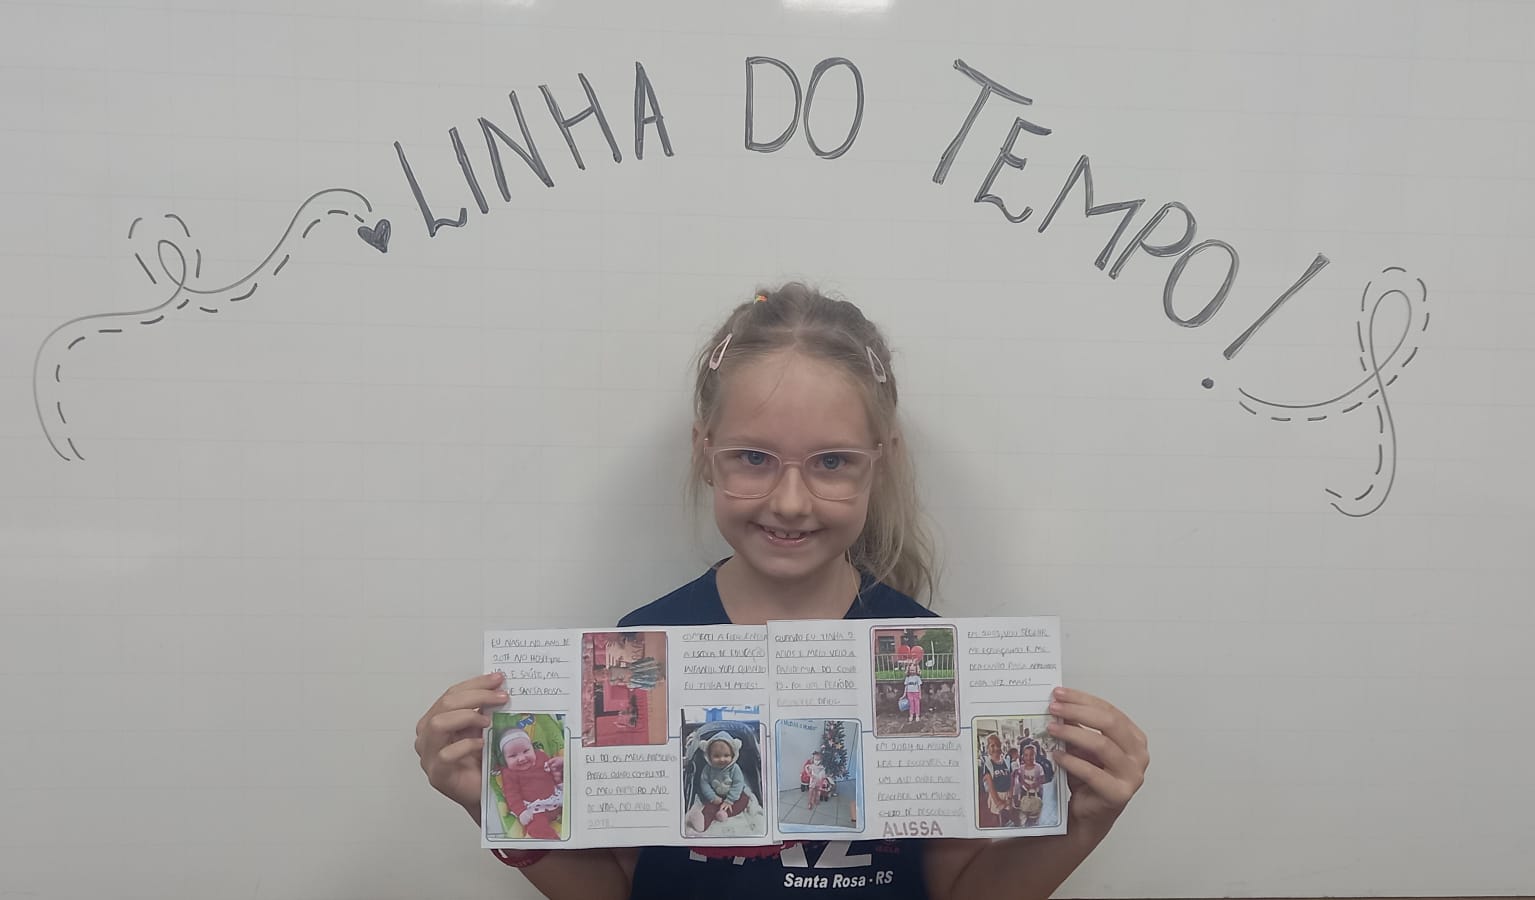 LINHA DO TEMPO!
EU NASCI NO ANO DE
2017 NO HOSPITAL
VIDA E SAÚDE, NA
DE SANTA ROSA.
EU DEI OS MEUS PRIMEIROS
PASSOS QUANDO COMPLETEI
O MEU PRIMEIRO ANO
DE VIDA, NO ANO DE
2018.
COMECEI A FREQUENTAR
A ESCOLA DE EDUCAÇÃO
INFANTIL QUANDO
EU TINHA 4 MESES!
QUANDO EU TINHA 2
ANOS E MEIO VEIO A
PANDEMIA DO COVID
19. FOI UM PERÍODO
DIFÍCIL.
EM 2024 EU APRENDI A
LER E ESCREVER. FOI
UM ANO ONDE PUDE
PERCEBER UM MUNDO
CHEIO DE DESCOBERTAS
ALISSA
EM 2025, VOU SEGUIR
ME ESFORÇANDO E ME
DEDICANDO PARA APRENDER
CADA VEZ MAIS!
PAZ
Santa Rosa · RS